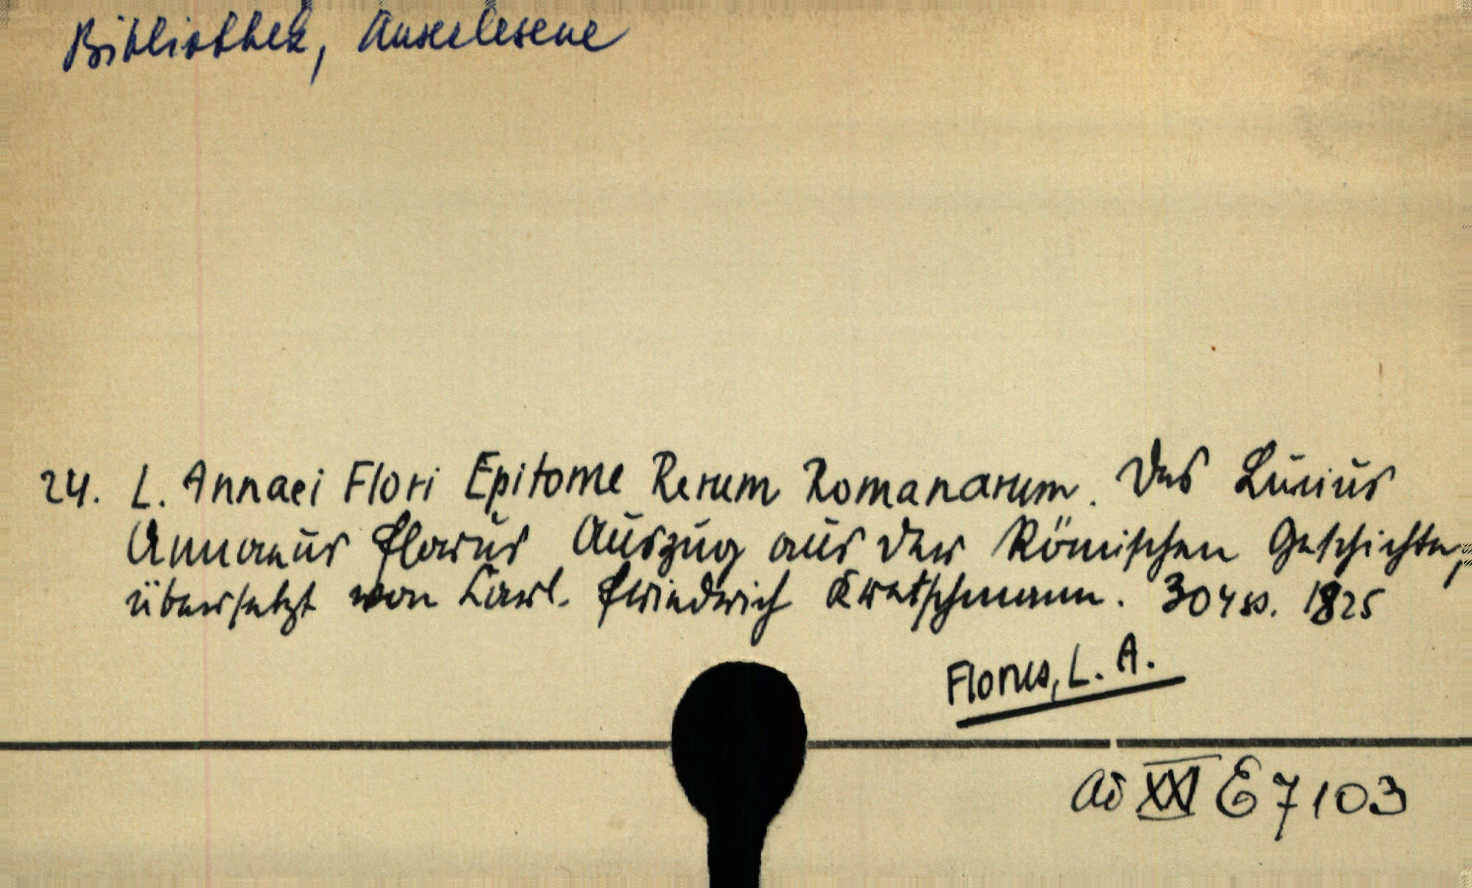 Bibliothek, Auserlesene
24. L. Annaei Flori Epitome Rerum Romanarum. Des Lucius
Annaeus Florus Auszug aus der Römischen Geschichte,
übersetzt von Carl. Friedrich Kretschmann. 304 ss. 1825
Florus, L. A.
ad XXI E 7103